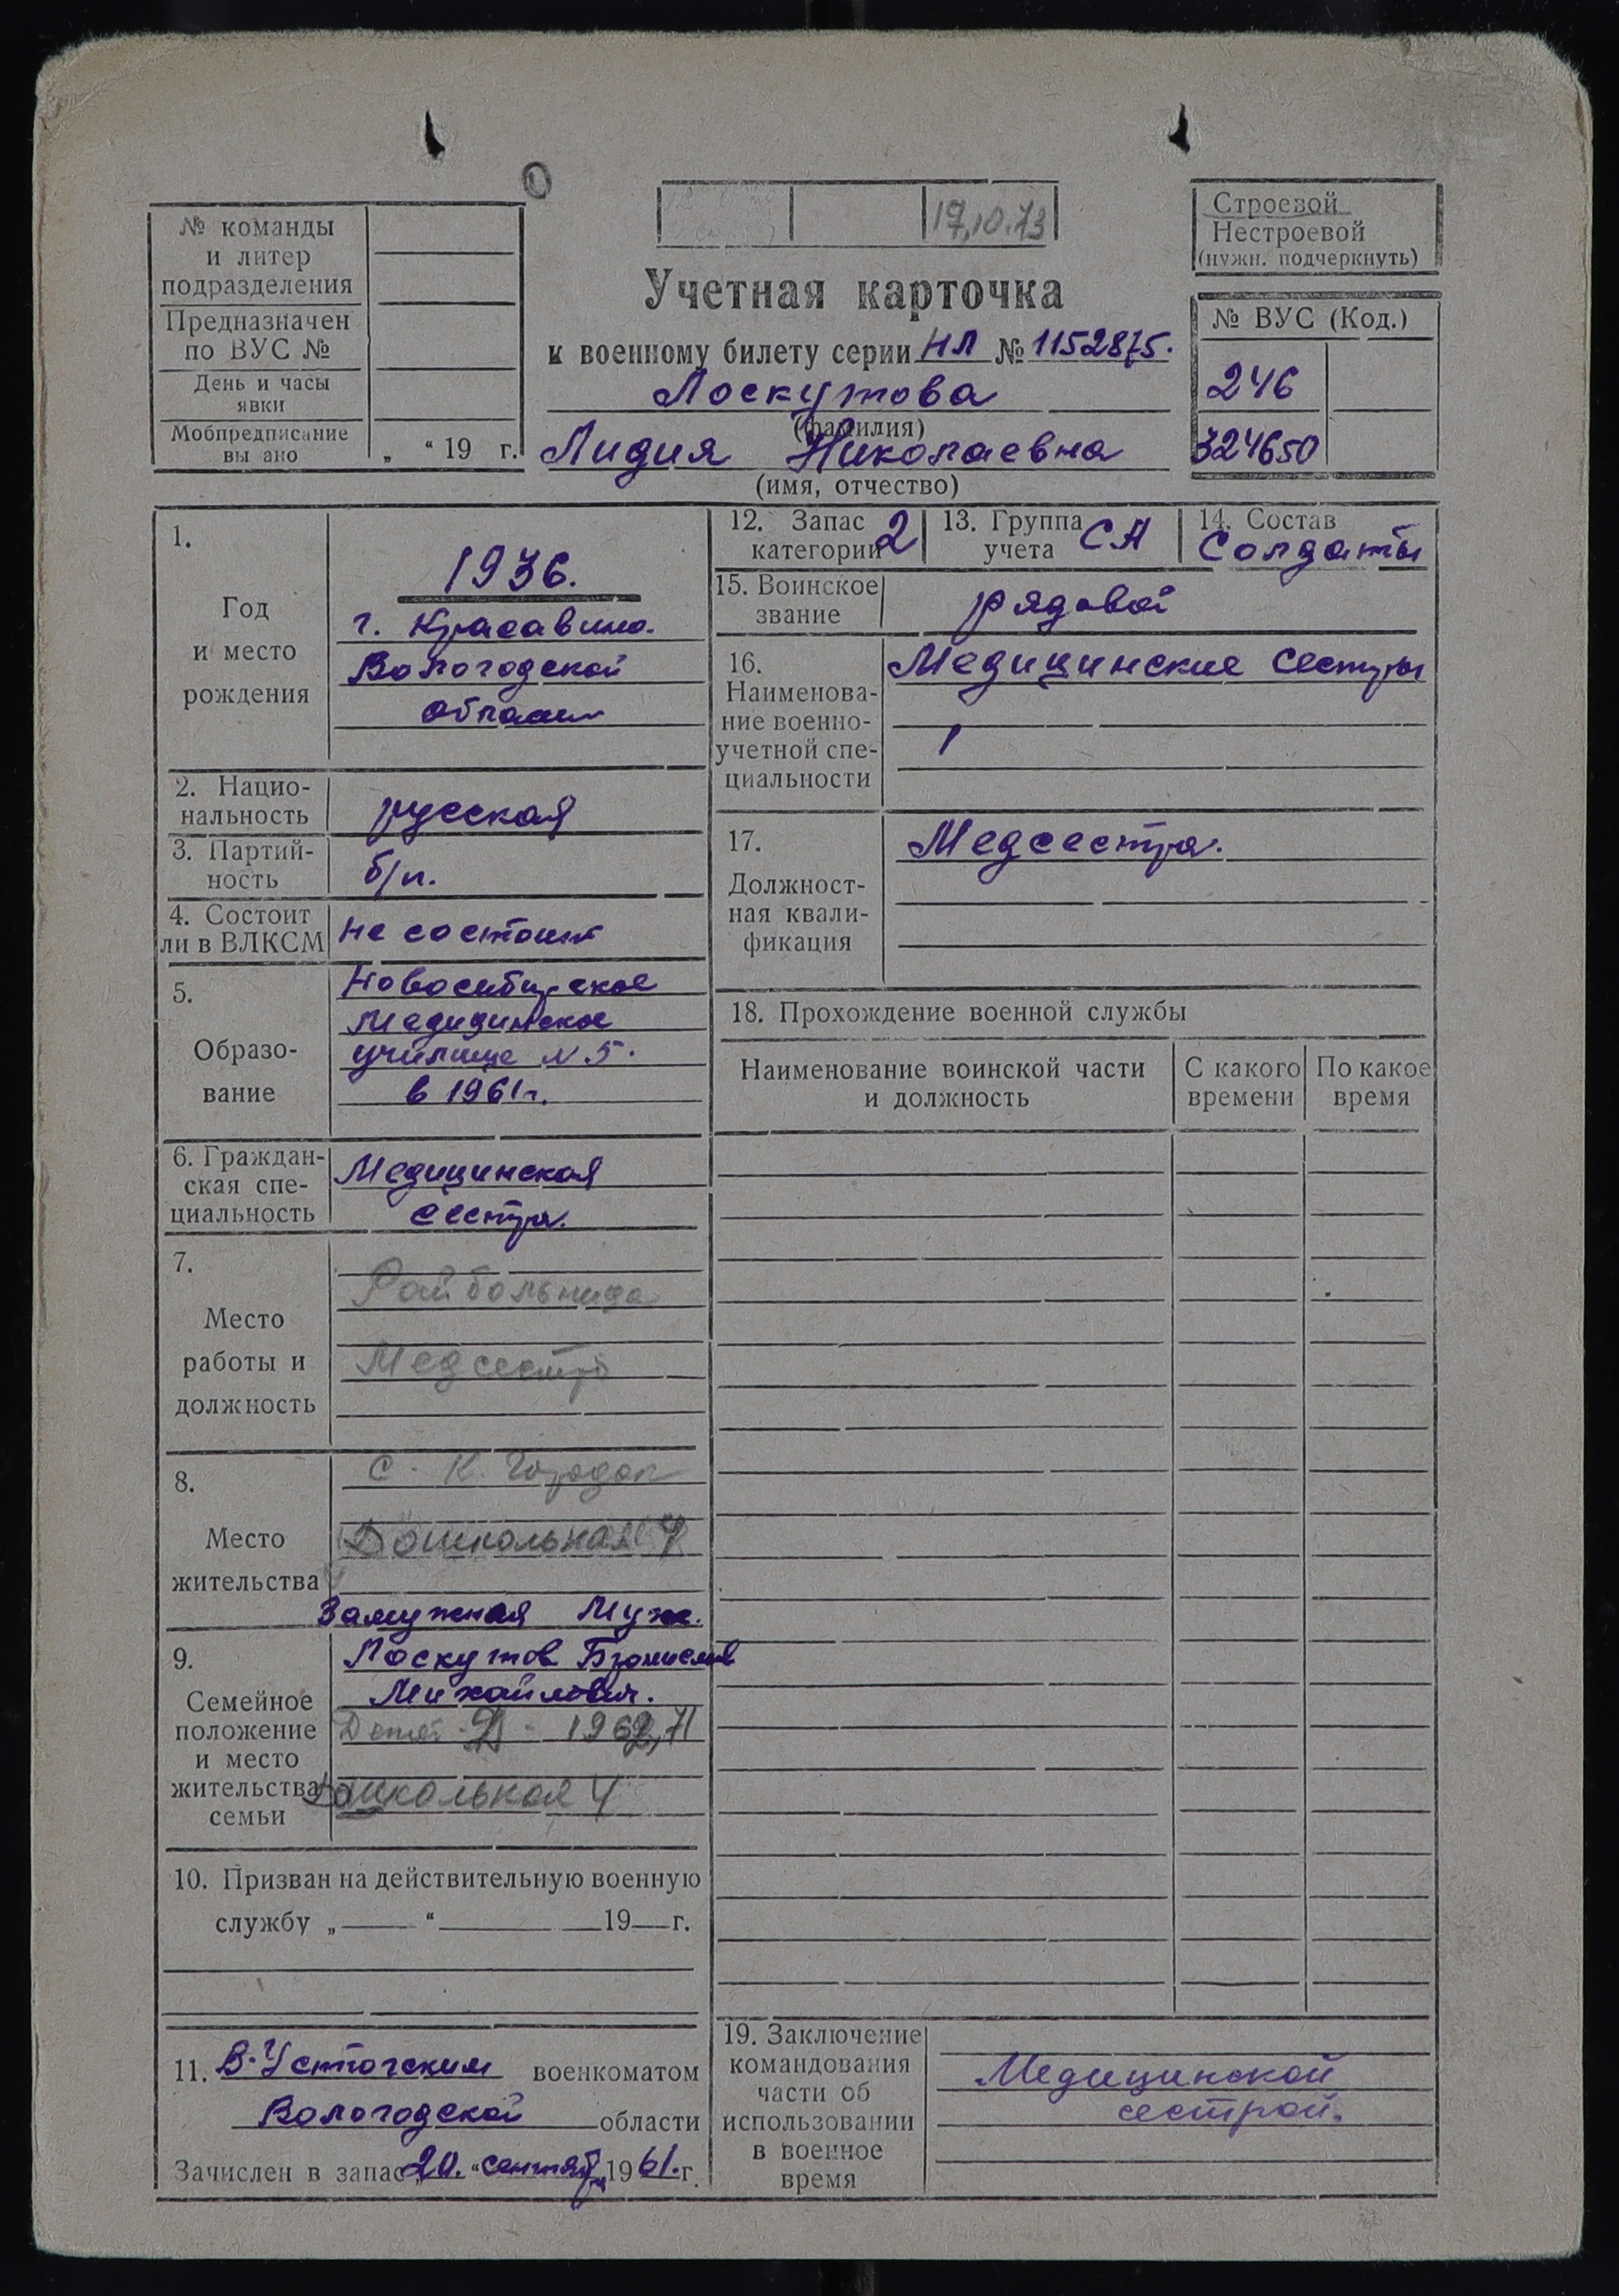 17.10.73
Строевой
Нестроевой
(нужн. подчеркнуть)
№ команды
и литер
подразделения
Предназначен
по ВУС №
День и часы
явки
Мобпредписание
вы ано „ “ 19 г.
Учетная карточка
к военному билету серии НЛ № 1152875.
Лоскутова
(фамилия)
Лидия Николаевна
(имя, отчество)
№ ВУС (Код.)
246
324650
1.
Год
и место
рождения
1936.
г. Красавино.
Вологодской
области
2. Нацио-
нальность
русская
3. Партий-
ность
б/п.
4. Состоит
ли в ВЛКСМ
не состоит
5.
Образо-
вание
Новосибирское
Медицинское
училище N 5.
в 1961г.
6. Граждан-
ская спе-
циальность
Медицинская
сестра.
7.
Место
работы и
должность
Райбольница
Медсестра
8.
Место
жительства
с. К. Городок
Дошкольная 4
9.
Семейное
положение
и место
жительства
семьи
Замужная Муж.
Лоскутов Бронислав
Михайлович.
Детей - 2 - 1962, 71
Дошкольная 4
10. Призван на действительную военную
службу „ “ 19 г.
11. В-Устюгским военкоматом
Вологодской области
Зачислен в запас „20. “ сентября 1961. г.
12. Запас
категории 2
13. Группа
учета СА
14. Состав
Солдаты
15. Воинское
звание
рядовой
16.
Наименова-
ние военно-
учетной спе-
циальности
Медицинские сестры
17.
Должност-
ная квали-
фикация
Медсестра.
18. Прохождение военной службы
Наименование воинской части
и должность
С какого
времени
По какое
время
19. Заключение
командования
части об
использовании
в военное
время
Медицинской
сестрой.